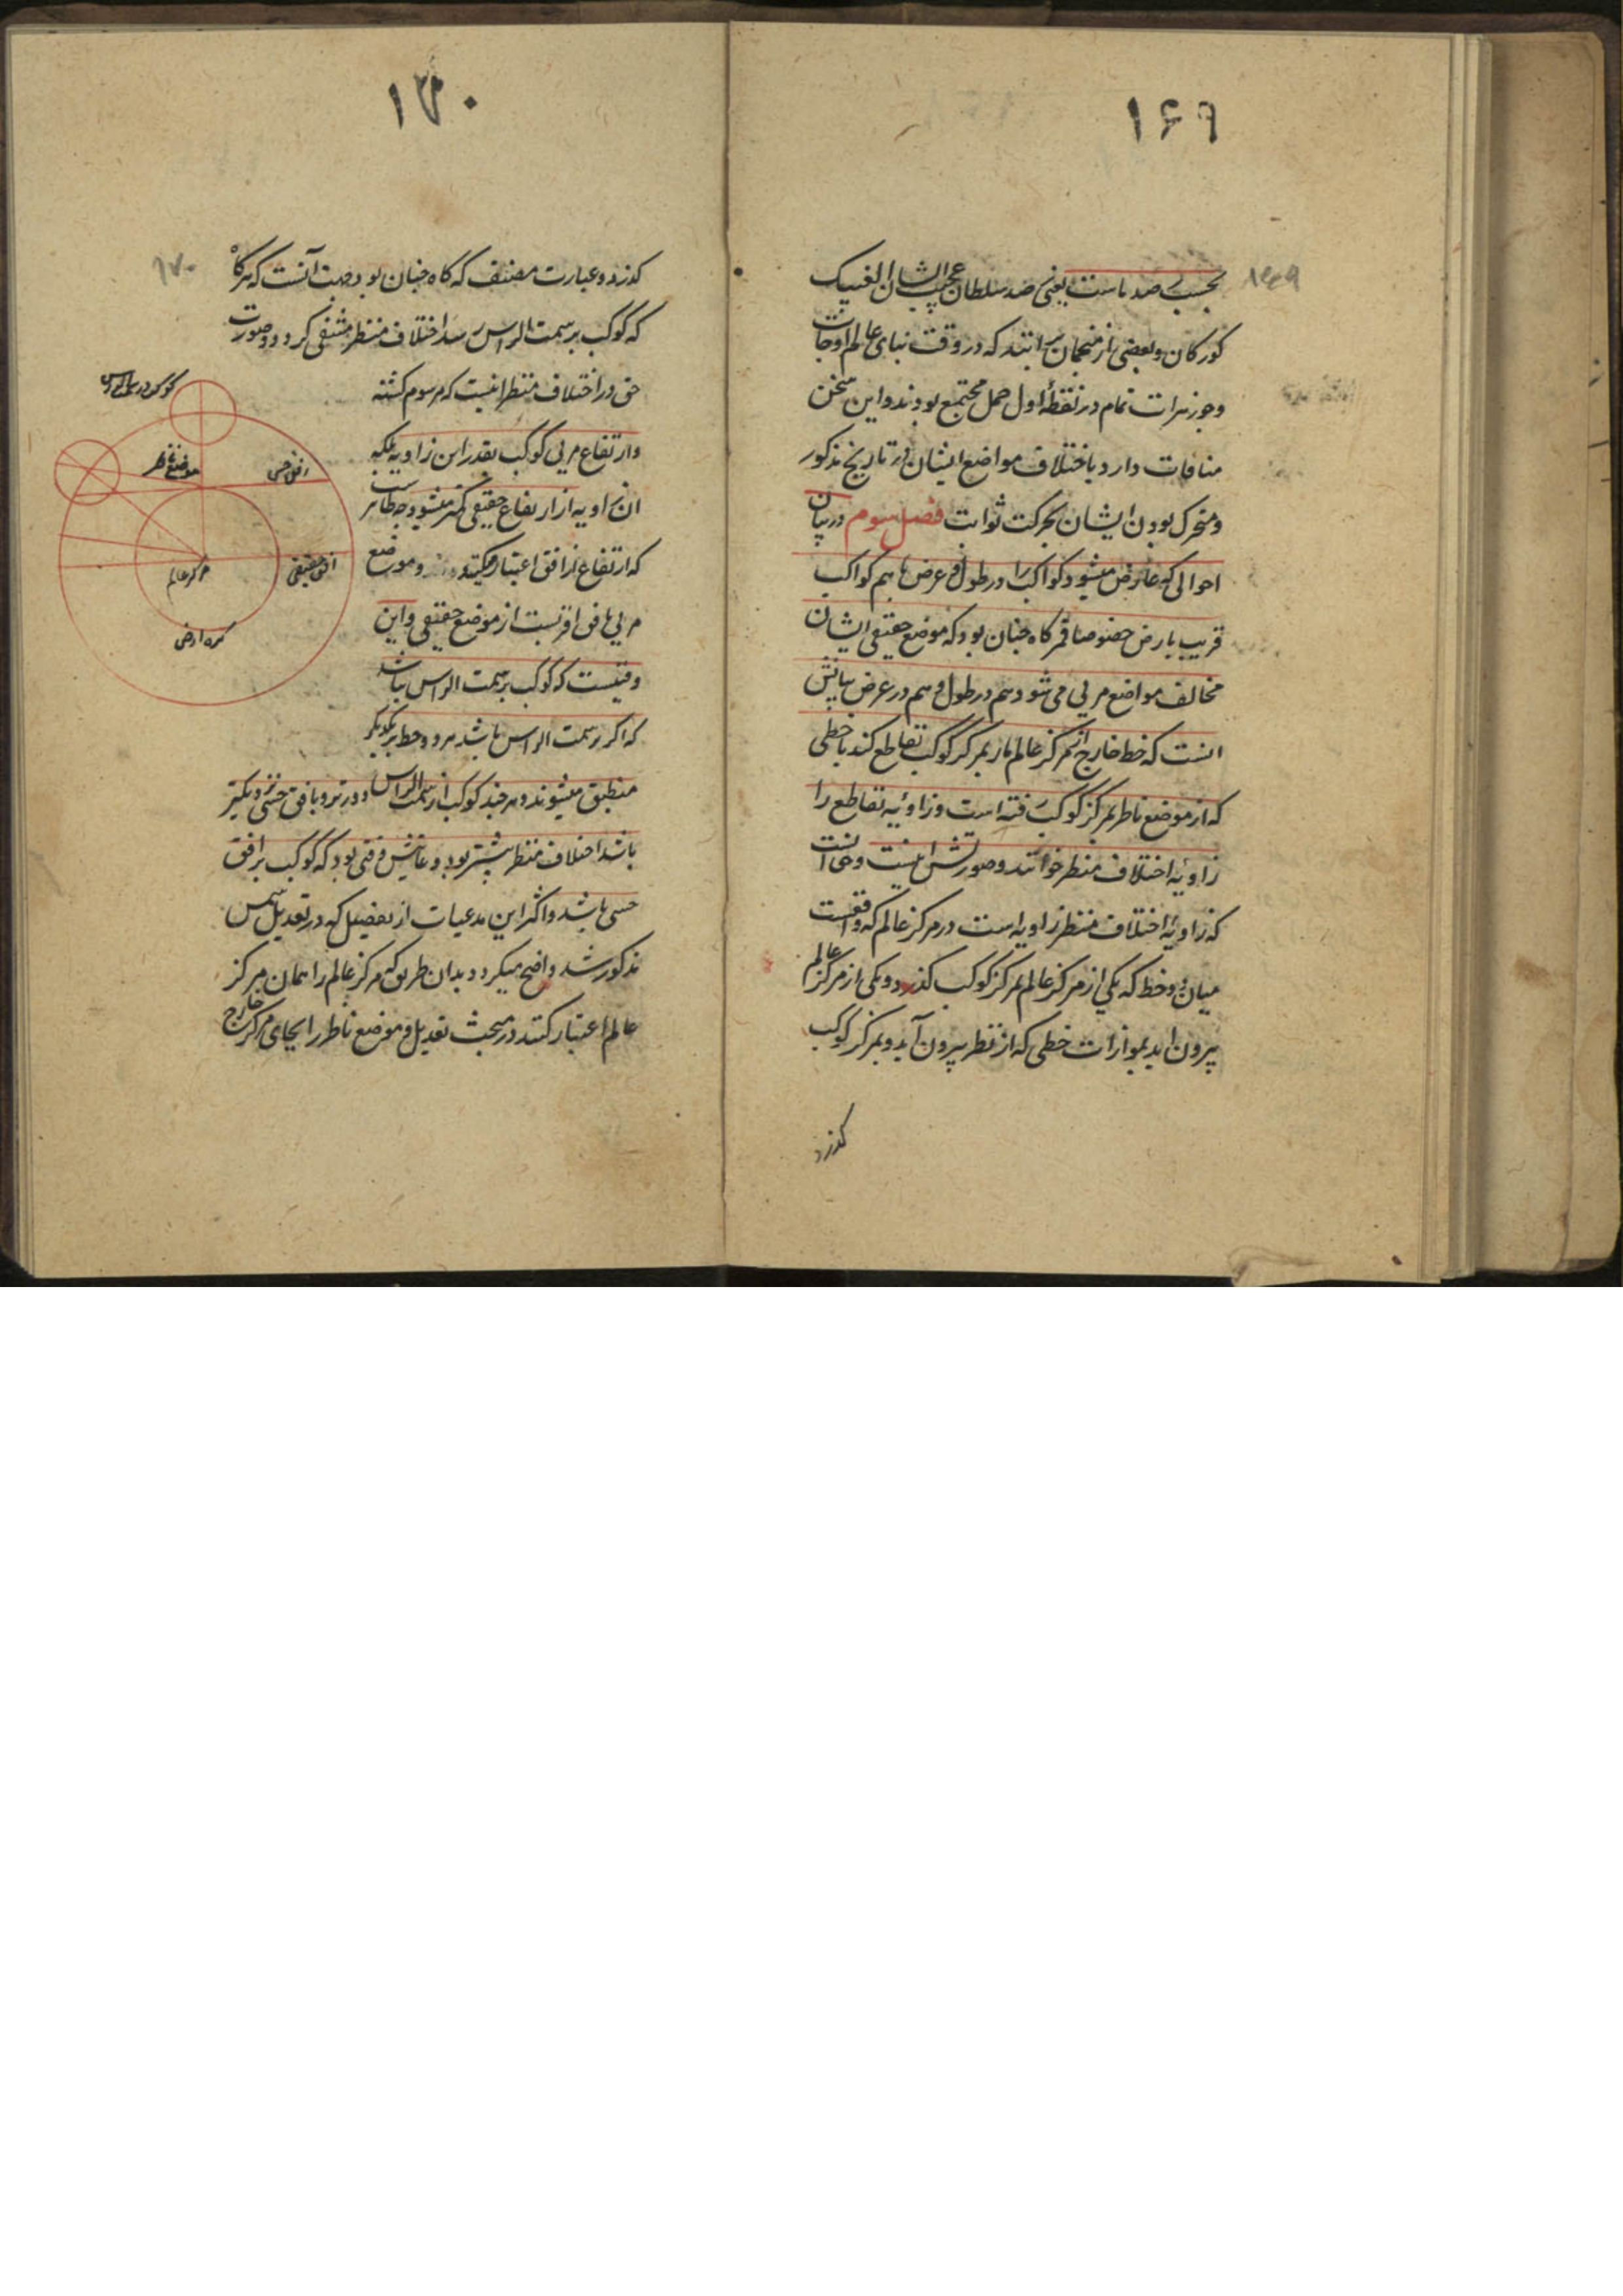 ۱۶۹
بحسب رصد ماست یعنی رصد سلطان عجیب الشان الغبیک
کورکان و بعضی از منجمان برانند که در وقت بنای عالم اوجات
وجوزهرات تمام در نقطهٔ اول حمل مجتمع بودند و این سخن
منافات دارد باختلاف مواضع ایشان در تاریخ مذکور
ومتحرک بودن ایشان بحرکت ثوابت فصل سوم در بیان
احوالی که عارض میشود کواکب را در طول و عرض باهم کواکب
قریب بارض خصوصا قمر کاه جنان بود که موضع حقیقی ایشان
مخالف مواضع مریی می شود هم در طول و هم در عرض بیانش
انست که خط خارج از مرکز عالم مار بمرکز کوکب تقاطع کند باخطی
که از موضع ناظر بمرکز کوکب رفته است وزاویه تقاطع را
زاویه اختلاف منظر خوانند وصورتش اینست وحق انست
که زاویهٔ اختلاف منظر زاویه است در مرکز عالم که واقعست
میان دو خط که یکی از مرکز عالم بمرکز کوکب کذرد ویکی از مرکز عالم
بیرون اید بموازات خطی که از منظر بیرون آید وبمرکز کوکب
کذرد
۱۷۰
کذرد وعبارت مصنف که کاه جنان بود جهت آنست که هرکاه
که کوکب بر سمت الراس رسد اختلاف منظر منتفی کردد وصورت
حق در اختلاف منظر اینست که مرسوم کشته
وارتفاع مریی کوکب بقدر این زاویه بلکه
ان زاویه از ارتفاع حقیقی کمتر میشود جه ظاهر است
که ارتفاع از افق اعتبار میکنند وموضع
مریی بافق اقربست از موضع حقیقی واین
وقتیست که کوکب بر سمت الراس نباشد
که اکر بر سمت الراس باشد هر دو خط بر یکدیکر
منطبق میشوند وهر جند کوکب از سمت الراس دورتر وبافق حسی نزدیکتر
باشد اختلاف منظر بیشتر بود وغایتش وقتی بود که کوکب بر افق
حسی باشد واکثر این مدعیات از تفصیل که در تعدیل شمس
مذکور شد واضح میکردد بدان طریق که مرکز عالم را همان مرکز
عالم اعتبار کنند در مبحث تعدیل و موضع ناظر را بجای مرکز خارج
کوکب در سمت الراس
موضع ناظر
افق حسی
مرکز عالم
افق حقیقی
کره ارض